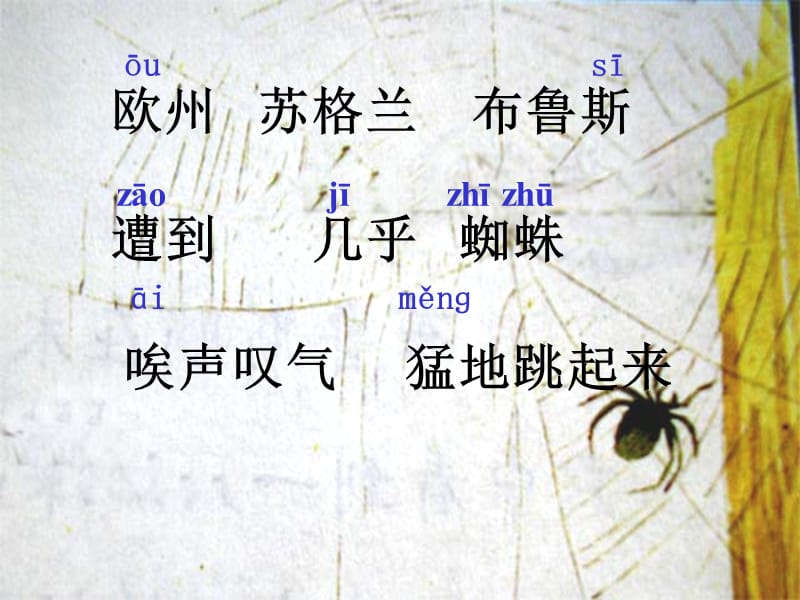 ōu sī
欧州 苏格兰 布鲁斯
zāo jī zhī zhū
遭到 几乎 蜘蛛
āi měng
唉声叹气 猛地跳起来